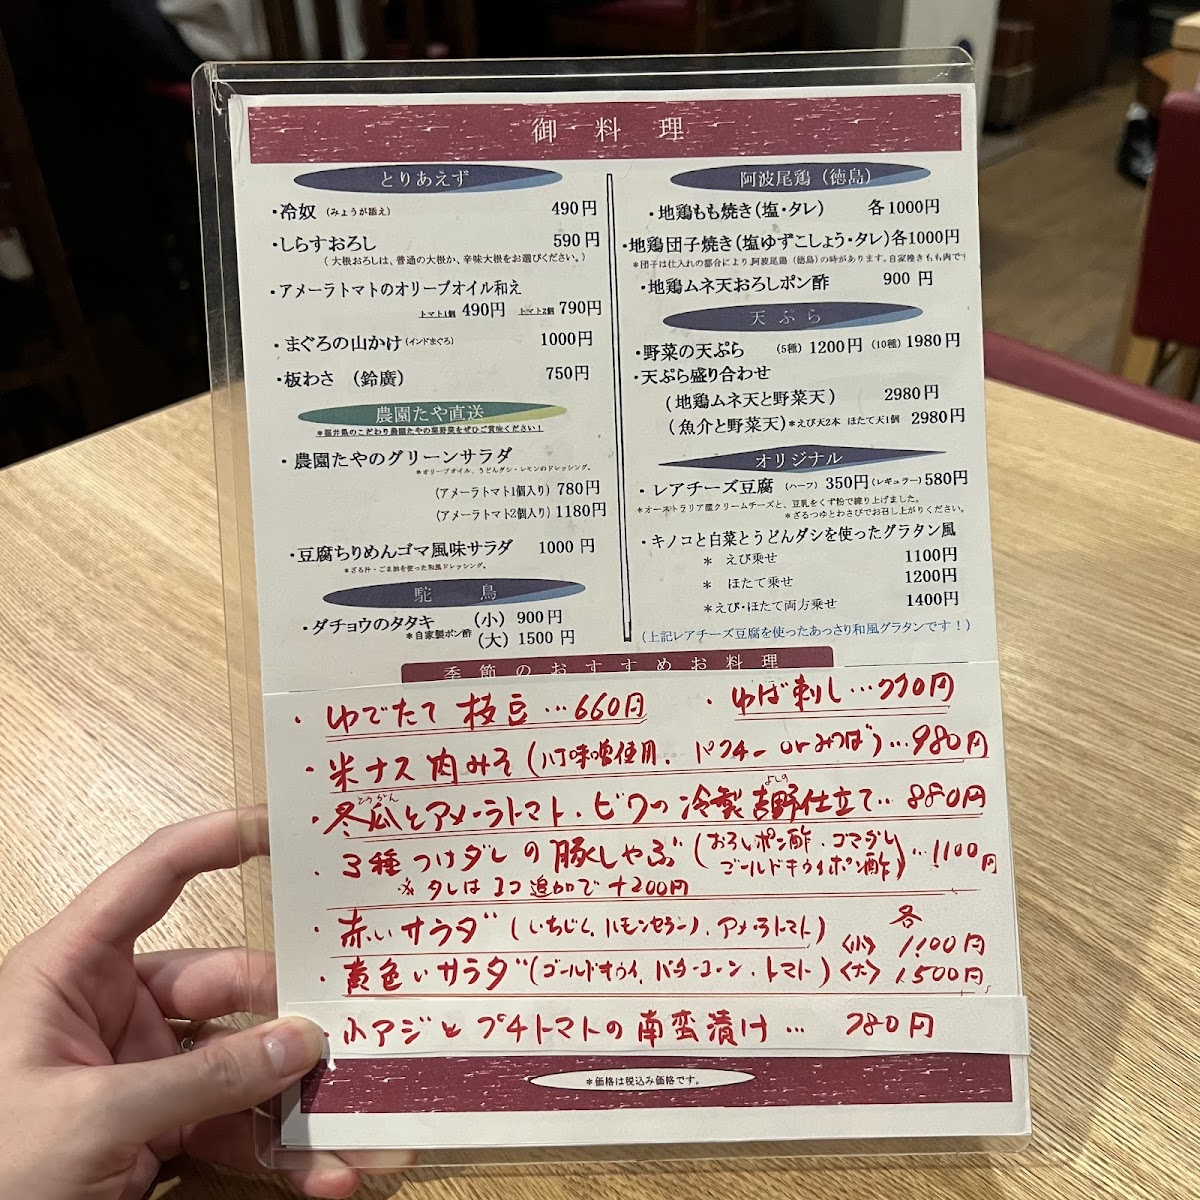 御料理
とりあえず
・冷奴（みょうが添え） 490円
・しらすおろし 590円
（大根おろしは、普通の大根か、辛味大根をお選びください。）
・アメーラトマトのオリーブオイル和え
トマト1個 490円 トマト2個 790円
・まぐろの山かけ（インドまぐろ） 1000円
・板わさ （鈴廣） 750円
農園たや直送
＊福井県のこだわり農園たやの葉野菜をぜひご賞味ください！
・農園たやのグリーンサラダ
＊オリーブオイル、うどんダシ・レモンのドレッシング。
（アメーラトマト1個入り） 780円
（アメーラトマト2個入り） 1180円
・豆腐ちりめんゴマ風味サラダ 1000円
＊ざる汁・ごま油を使った和風ドレッシング。
駝鳥
・ダチョウのタタキ （小） 900円
＊自家製ポン酢 （大） 1500円
阿波尾鶏（徳島）
・地鶏もも焼き（塩・タレ） 各1000円
・地鶏団子焼き（塩ゆずこしょう・タレ）各1000円
＊団子は仕入れの都合により、阿波尾鶏（徳島）の時があります。自家挽きもも肉で
・地鶏ムネ天おろしポン酢 900円
天ぷら
・野菜の天ぷら （5種） 1200円 （10種） 1980円
・天ぷら盛り合わせ
（地鶏ムネ天と野菜天） 2980円
（魚介と野菜天）＊えび天2本 ほたて天1個 2980円
オリジナル
・レアチーズ豆腐 （ハーフ） 350円（レギュラー）580円
＊オーストラリア産クリームチーズと、豆乳をくず粉で練り上げました。
＊ざるつゆとわさびでお召し上がりください。
・キノコと白菜とうどんダシを使ったグラタン風
＊ えび乗せ 1100円
＊ ほたて乗せ 1200円
＊えび・ほたて両方乗せ 1400円
（上記レアチーズ豆腐を使ったあっさり和風グラタンです！）
季節のおすすめお料理
・ゆでたて 枝豆…660円 ・ゆば刺し…770円
・米ナス肉みそ（八丁味噌使用、パクチー orみつば）…980円
・冬瓜とアメーラトマト、ビワの冷製吉野仕立て…880円
とうがん よしの
・3種つけダレの豚しゃぶ（おろしポン酢・ゴマダレ
ゴールドキウイポン酢）…1100円
※タレは1コ追加で＋200円
・赤いサラダ（いちじく、ハモンセラーノ、アメーラトマト） 各
〈小〉1,100円
・黄色いサラダ（ゴールドキウイ、バターコーン、トマト）〈大〉1,500円
・小アジとプチトマトの南蛮漬け… 780円
＊価格は税込み価格です。